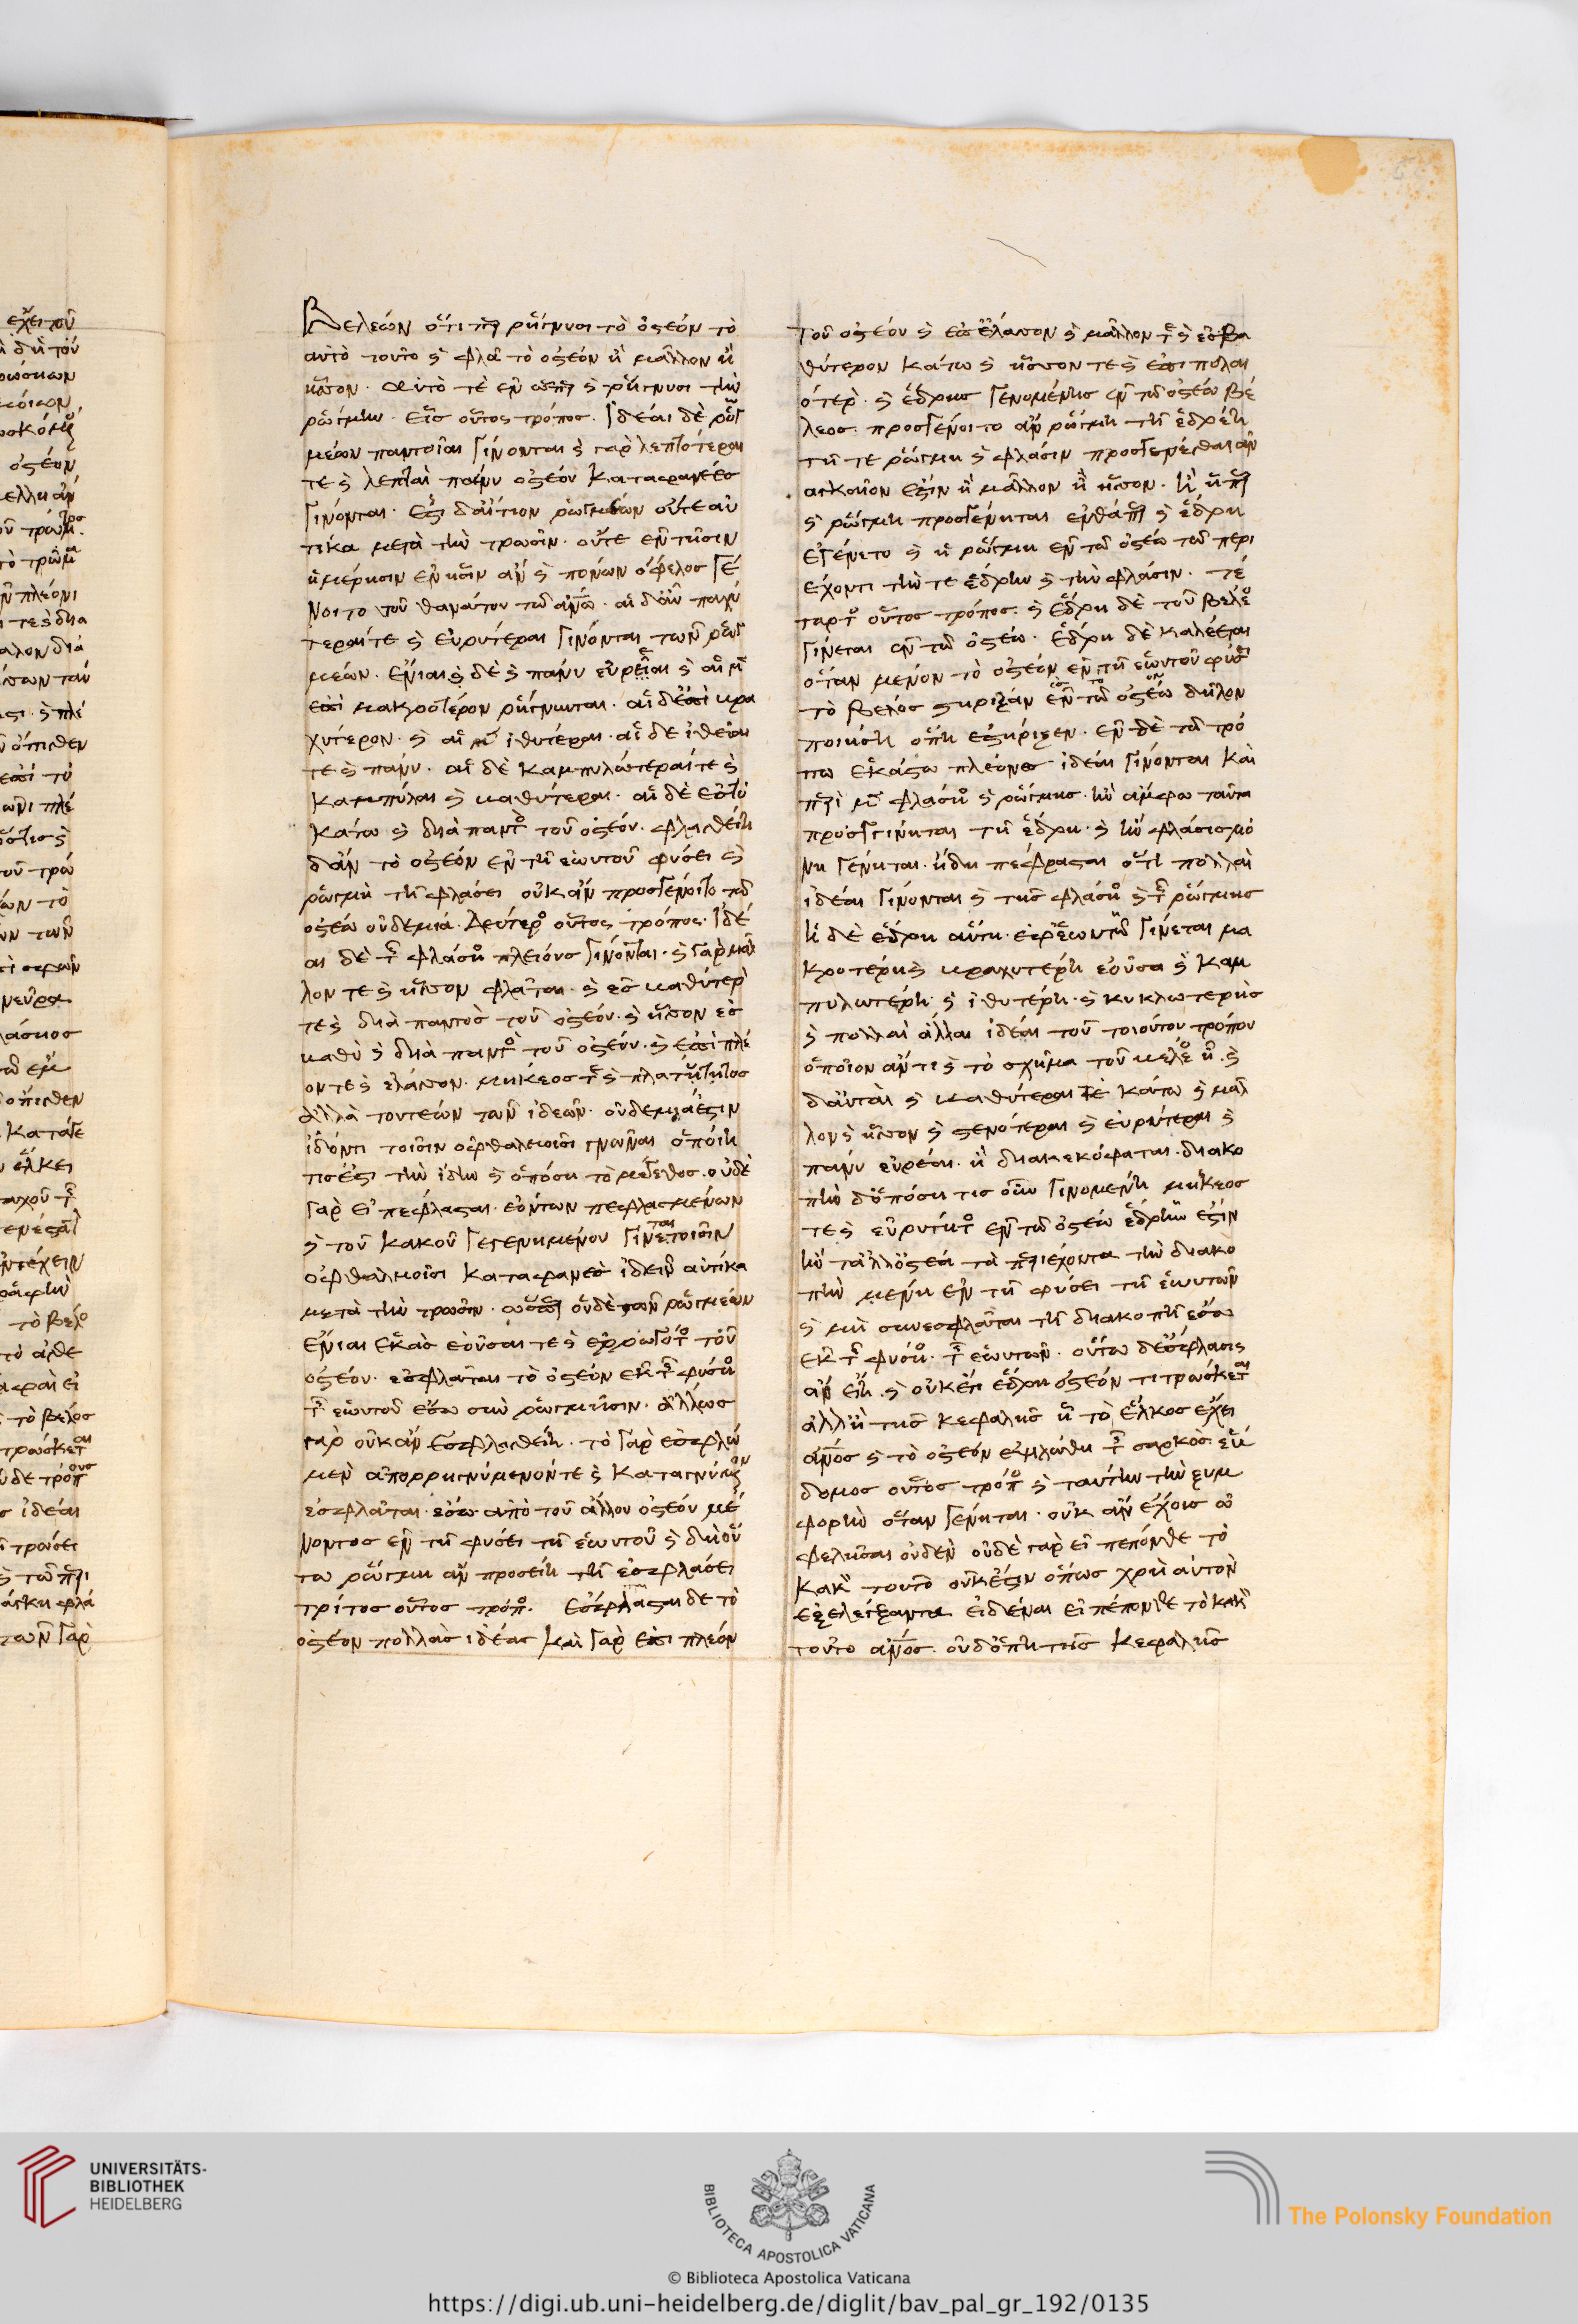 ἔχει τοῦ
ὀστέον
ὄπισθεν
νεῦρα
ὄπισθεν
ἕλκει
τὸ βέλος
ἰδέαι
τρώσει
τῶν γὰρ
Βελεών ὅτι περ ῥήγνυσι τὸ ὀστέον τὸ
αὐτὸ τοῦτο καὶ φλᾶ τὸ ὀστέον ἢ μᾶλλον ἢ
ἧσσον. αὐτὸ τὲ ἐν ὧπερ καὶ ῥήγνυσι τὴν
ῥωγμήν. εἷς οὗτος τρόπος. ἰδέαι δὲ ῥωγ
μέων παντοῖαι γίνονται καὶ γὰρ λεπτότεραι
τε καὶ λεπταὶ πάνυ ὀστέον καταφανέες
γίνονται. ἔστι δαίτιον ῥωγμέων οὔτε αὐ
τίκα μετὰ τὴν τρῶσιν. οὔτε ἐν τῆσιν
ἡμέρησιν ἐν ἧσιν ἂν καὶ πόνων ὄφελος γέ
νοιτο τοῦ θανάτου τῶ ἀνω. αἱ δαὖ παχύ
τεραί τε καὶ εὐρύτεραι γίνονται τῶν ῥωγ
μέων. ἔνιαι καὶ δὲ καὶ πάνυ εὐρεῖαι καὶ αἱ μὲν
ἐπὶ μακρότερον ῥήγνυνται. αἱ δὲ ἐπὶ βρα
χύτερον. καὶ αἱ μὲν ἰθύτεραι. αἱ δὲ ἰθεῖαι
τε καὶ πάνυ. αἱ δὲ καμπυλώτεραί τε καὶ
καμπύλαι καὶ βαθύτεραι. αἱ δὲ ἐς τὸ
κάτω καὶ διὰ παντὸς τοῦ ὀστέου. φλασθείη
δ' ἂν τὸ ὀστέον ἐν τῆ ἑωυτοῦ φύσει καὶ
ῥωγμὴ τῆ φλάσει οὐκ ἂν προσγένοιτο τῶ
ὀστέω οὐδεμιά. δεύτερος οὗτος τρόπος. ἰδέ
αι δὲ τῆς φλάσιος πλείους γίνονται. καὶ γὰρ μᾶλ
λον τε καὶ ἧσσον φλᾶται. καὶ ἐς βαθύτερον
τε καὶ διὰ παντὸς τοῦ ὀστέου. καὶ ἧσσον ἐς
βαθὺ καὶ διὰ παντὸς τοῦ ὀστέου. καὶ ἐπὶ πλέ
ον τε καὶ ἔλασσον. μήκεος τε καὶ πλατύτητος
ἀλλὰ τουτέων τῶν ἰδεῶν. οὐδεμιάεστιν
ἰδόντι τοῖσιν ὀφθαλμοῖσι γνῶναι ὁποίη
τις ἐστι τὴν ἰδέην καὶ ὁπόση τὸ μέγεθος. οὐδὲ
γὰρ εἰ πέφλασται. ἐόντων πεφλασμένων
καὶ τοῦ κακοῦ γεγενημένου γίνεται τοῖσιν
ὀφθαλμοῖσι καταφανὲς ἰδεῖν αὐτίκα
μετὰ τὴν τρῶσιν. ὥσπερ οὐδὲ τῶν ῥωγμέων
ἔνιαι ἑκὰς ἐοῦσαι τε καὶ ἐρρωγότος τοῦ
ὀστέου. ἐσφλᾶται τὸ ὀστέον ἐκ τῆς φύσιος
τῆς ἑωυτοῦ ἔσω σὺν ῥωγμῆισιν. ἄλλως
γὰρ οὐκ ἂν ἐσφλασθείη. τὸ γὰρ ἐσφλώ
μενον ἀπορρηγνύμενόν τε καὶ καταγνύμενον
ἐσφλᾶται. ἔσω ἀπὸ τοῦ ἄλλου ὀστέου μέ
νοντος ἐν τῆ φύσει τῆ ἑωυτοῦ καὶ διὸ οὕ
τω ῥωγμὴ ἂν προσείη τῆ ἐσφλάσει
τρίτος οὗτος τρόπος. ἐσφλᾶται δὲ τὸ
ὀστέον πολλὰς ἰδέας καὶ γὰρ ἐπὶ πλέον
τοῦ ὀστέου καὶ ἐπ' ἔλασσον καὶ μᾶλλον τε καὶ ἐς βα
θύτερον κάτω καὶ ἧσσον τε καὶ ἐπιπολαι
ότερον. καὶ ἕδρης γενομένης ἐν τῶ ὀστέω βέ
λεος. προσγένοιτο ἂν ῥωγμὴ τῆ ἕδρη
τῆ τε ῥωγμῆ καὶ φλάσιν προσγενέσθαι ἂν
αγκαῖον ἐστὶν ἢ μᾶλλον ἢ ἧσσον. ἢν ἥπερ
καὶ ῥωγμὴ προσγένηται ἐνθάπερ καὶ ἕδρη
ἐγένετο καὶ ἡ ῥωγμὴ ἐν τῶ ὀστέω τῶ περι
έχοντι τήν τε ἕδρην καὶ τὴν φλάσιν. τέ
ταρτος οὗτος τρόπος. καὶ ἕδρη δὲ τοῦ βέλεος
γίνεται ἐν τῶ ὀστέω. ἕδρη δὲ καλέεται
ὅταν μένον τὸ ὀστέον ἐν τῆ ἑωυτοῦ φύσει
τὸ βέλος στηρίξαν ἐν τῶ ὀστέω δῆλον
ποιήση ὅπη ἐστήριξεν. ἐν δὲ τῶ τρό
πω ἑκάστω πλέονες ἰδέαι γίνονται καὶ
περὶ μὲν φλάσιος καὶ ῥωγμῆς. ἢν ἄμφω ταῦτα
προσγίνηται τῆ ἕδρη. καὶ ἢν φλάσις μό
νη γένηται. ἤδη πέφρασται ὅτι πολλαὶ
ἰδέαι γίνονται καὶ τῆς φλάσιος καὶ τῆς ῥωγμῆς
ἡ δὲ ἕδρη αὕτη. ἐφ' ἑωυτῆς γίνεται μα
κροτέρη καὶ βραχυτέρη ἐοῦσα καὶ καμ
πυλωτέρη. καὶ ἰθυτέρη. καὶ κυκλωτερὴς
καὶ πολλαὶ ἄλλαι ἰδέαι τοῦ τοιούτου τρόπου
ὁποῖον ἄν τι καὶ τὸ σχῆμα τοῦ βέλεος ἦ. καὶ
δαὐταὶ καὶ βαθύτεραι τὲ κάτω καὶ μᾶλ
λον καὶ ἧσσον καὶ στενότεραι καὶ εὐρύτεραι καὶ
πάνυ εὐρέαι. ἢ διακεκόφαται. διακο
πὴ δ' ὁπόση τις οὖν γινομένη μήκεος
τε καὶ εὐρύτητος ἐν τῶ ὀστέω ἕδρη ἐστὶν
ἢν τἄλλ' ὀστέα τὰ περιέχοντα τὴν διακο
πὴν μένη ἐν τῆ φύσει τῆ ἑωυτῶν
καὶ μὴ συνεσφλᾶται τῆ διακοπῆ ἔσω
ἐκ τῆς φύσιος. τῆς ἑωυτῶν. οὕτω δ' ἔσφλασις
ἂν εἴη. καὶ οὐκέτι ἕδρη ὀστέον τιτρώσκεται
ἀλλ' ἢ τῆς κεφαλῆς ἢ τὸ ἕλκος ἔχει
ἄνος καὶ τὸ ὀστέον ἐψιλώθη τῆς σαρκὸς. ἕβ
δομος οὗτος τρόπος καὶ ταύτην τὴν ξυμ
φορὴν ὅταν γένηται. οὐκ ἂν ἔχοις ὠ
φελῆσαι οὐδὲν οὐδὲ γὰρ εἰ πέπονθε τὸ
κακὸν τοῦτο οὐκ ἔστιν ὅπως χρὴ αὐτὸν
ἐξελέγξαντα εἰδέναι εἰ πέπονθε τὸ κακὸν
τοῦτο ἄνος. οὐδ' ὅπη τῆς κεφαλῆς
UNIVERSITÄTS-
BIBLIOTHEK
HEIDELBERG
BIBLIOTECA APOSTOLICA VATICANA
© Biblioteca Apostolica Vaticana
The Polonsky Foundation
https://digi.ub.uni-heidelberg.de/diglit/bav_pal_gr_192/0135